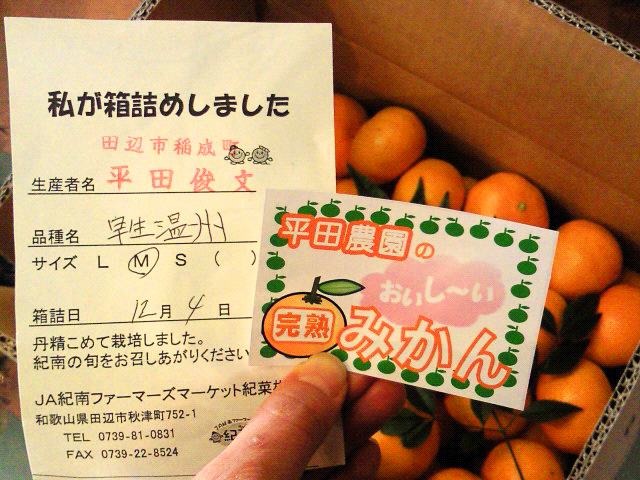 私が箱詰めしました
田辺市稲成町
生産者名 平田俊文
品種名 早生温州
サイズ L M S ( )
箱詰日 12月4日
丹精こめて栽培しました。
紀南の旬をお召しあがりください
JA紀南ファーマーズマーケット紀菜
和歌山県田辺市秋津町752-1
TEL 0739-81-0831
FAX 0739-22-8524
平田農園の
おいし〜い
完熟
みかん